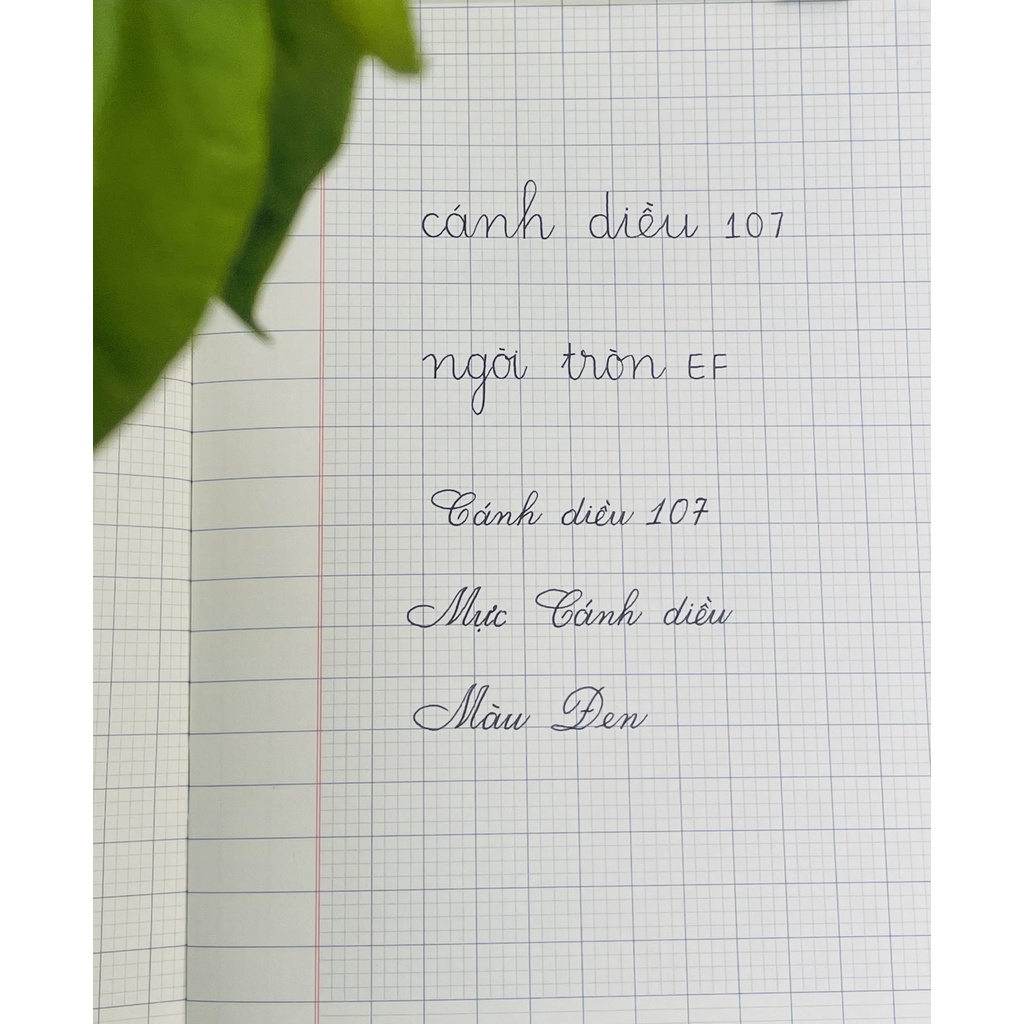 cánh diều 107
ngòi tròn EF
Cánh diều 107
Mực Cánh diều
Màu Đen